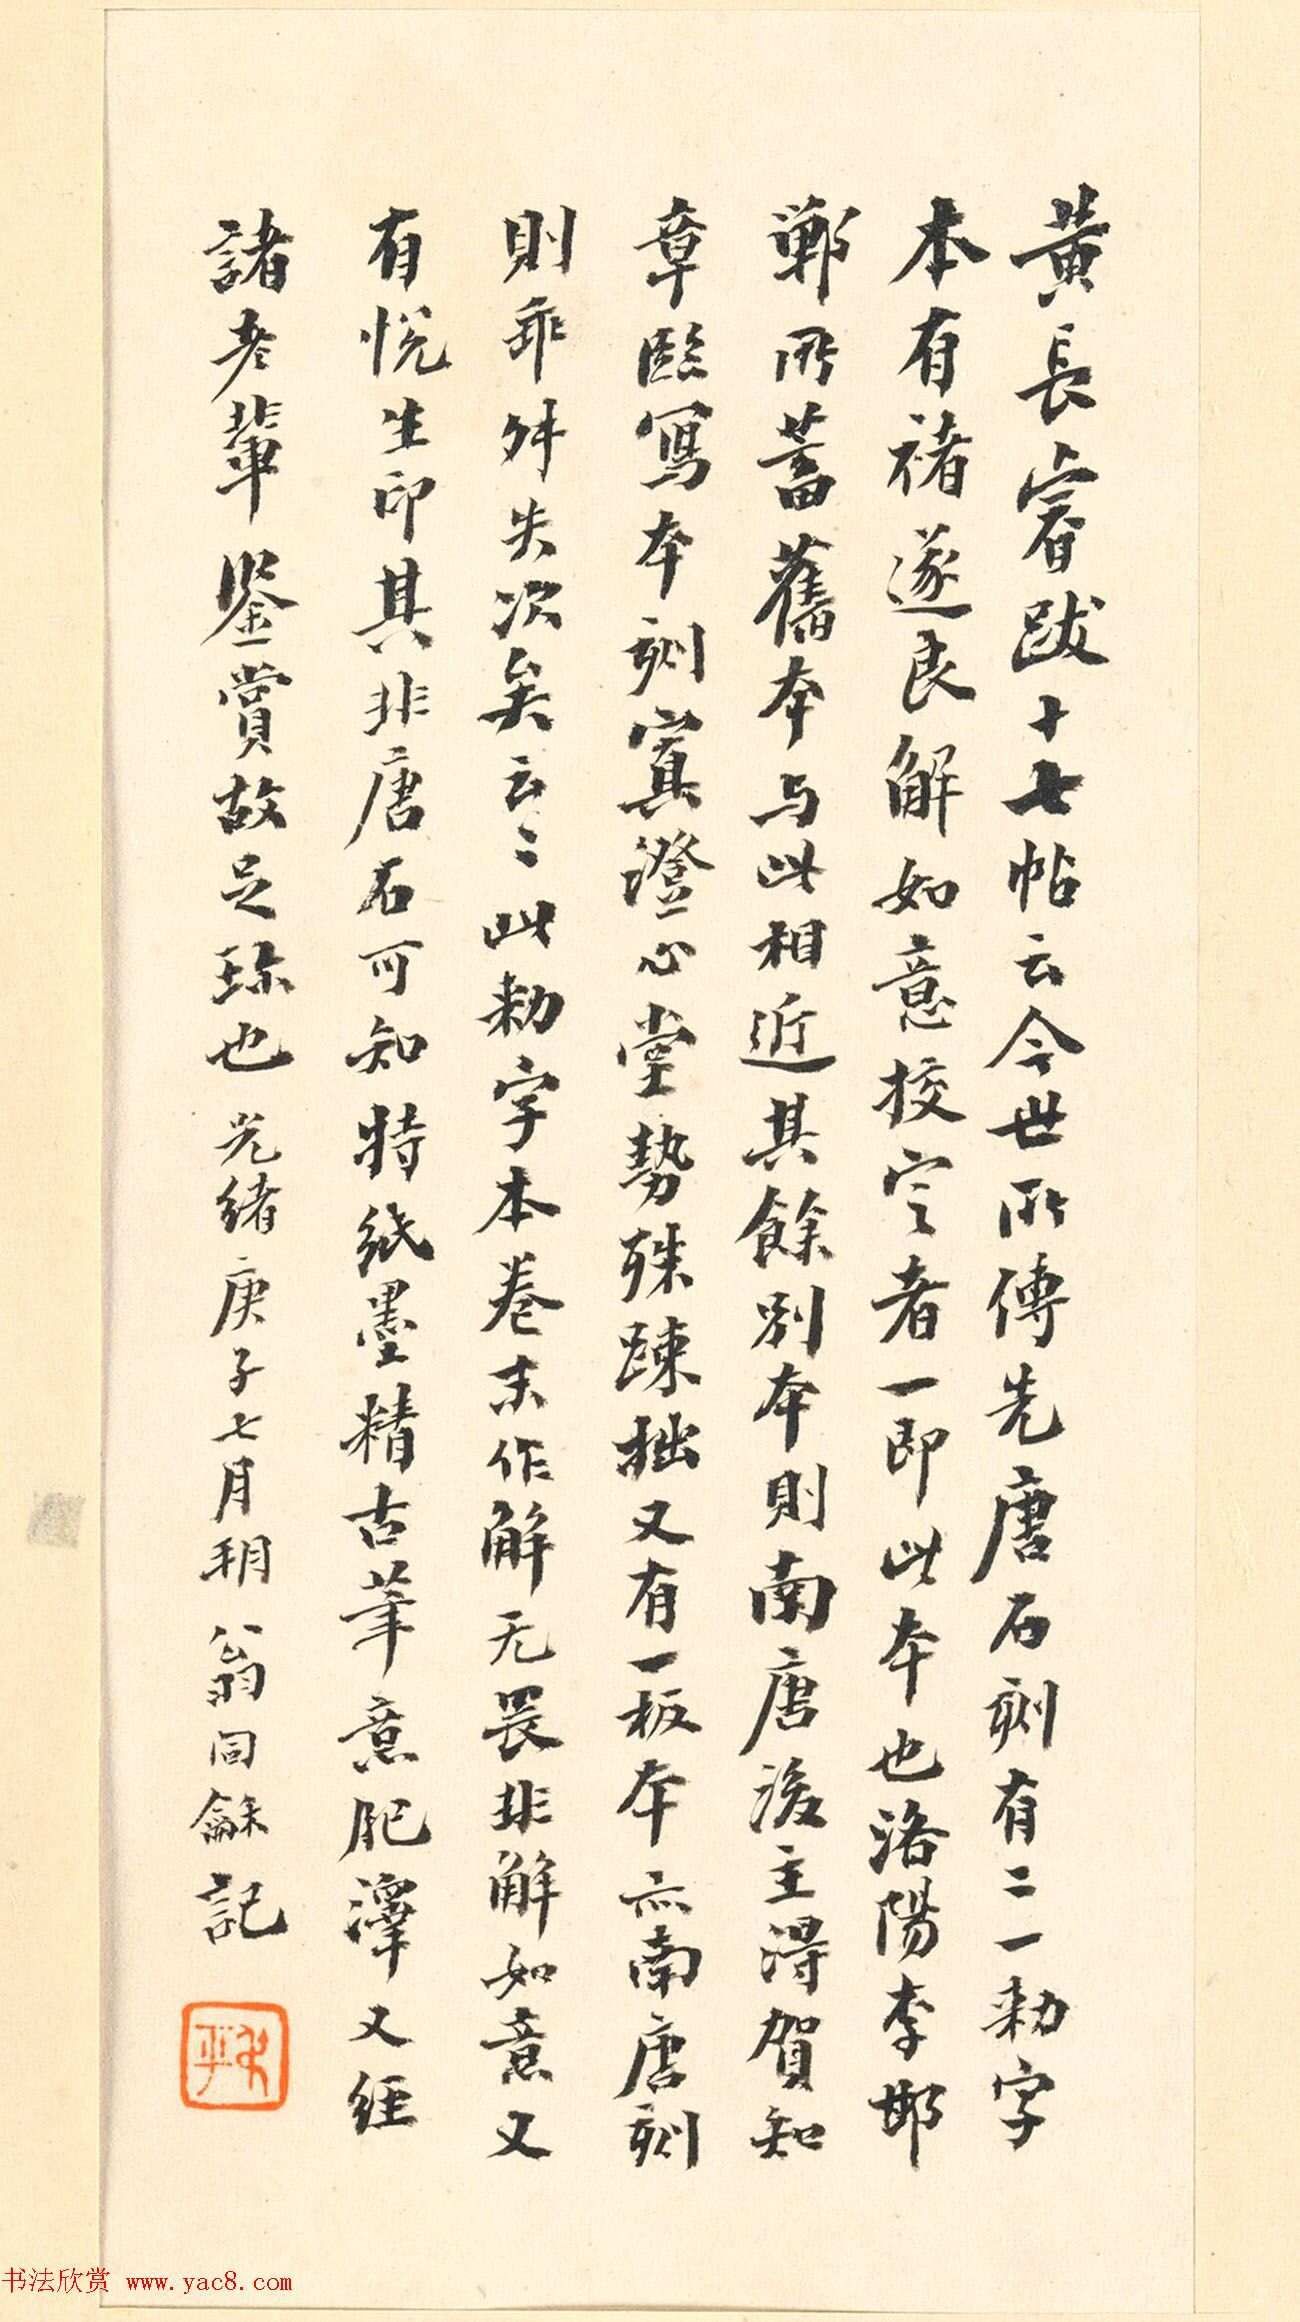 黃長睿跋十七帖云今世所傳先唐石刻有二一勑字
本有褚遂良解如意挍定者一即此本也洛陽李邯
鄲所蓄舊本与此相近其餘別本則南唐後主得賀知
章臨寫本刻寘澄心堂勢殊踈拙又有一板本亦南唐刻
則乖舛失次矣云〻此勑字本卷末作解无畏非解如意又
有悅生印其非唐石可知特紙墨精古筆意肥澤又經
諸老輩鑒賞故足珎也光緒庚子七月朔翁同龢記
书法欣赏 www.yac8.com